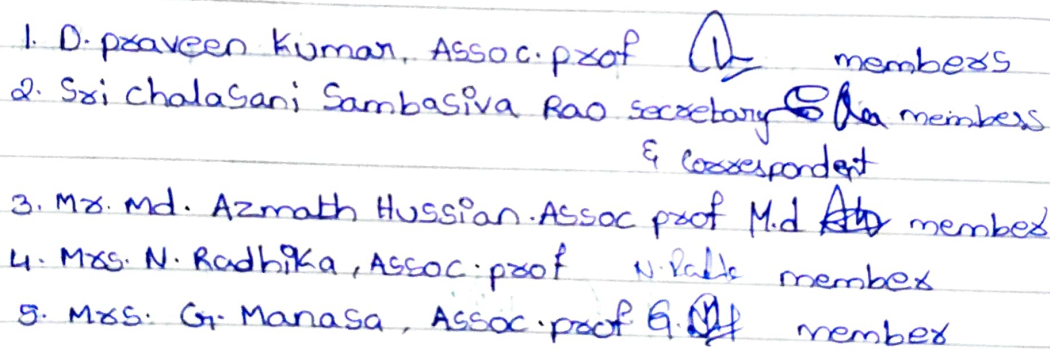 1. D. praveen Kumar, Assoc. prof members
2. Sri chalasani Sambasiva Rao secretary members
& Correspondent
3. Mr. Md. Azmath Hussian. Assoc prof M.d member
4. Mrs. N. Radhika, Assoc. prof N. member
5. Mrs. G. Manasa, Assoc. prof G. member